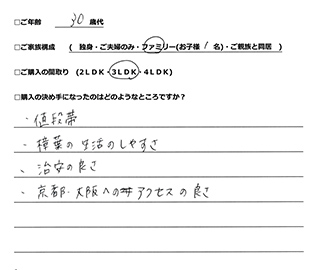 □ご年齢 30 歳代
□ご家族構成 (独身・ご夫婦のみ・ファミリー(お子様 1 名)・ご親族と同居)
□ご購入の間取り (2LDK・3LDK・4LDK)
□購入の決め手になったのはどのようなところですか？
・値段帯
・樟葉の生活のしやすさ
・治安の良さ
・京都・大阪へのアクセスの良さ